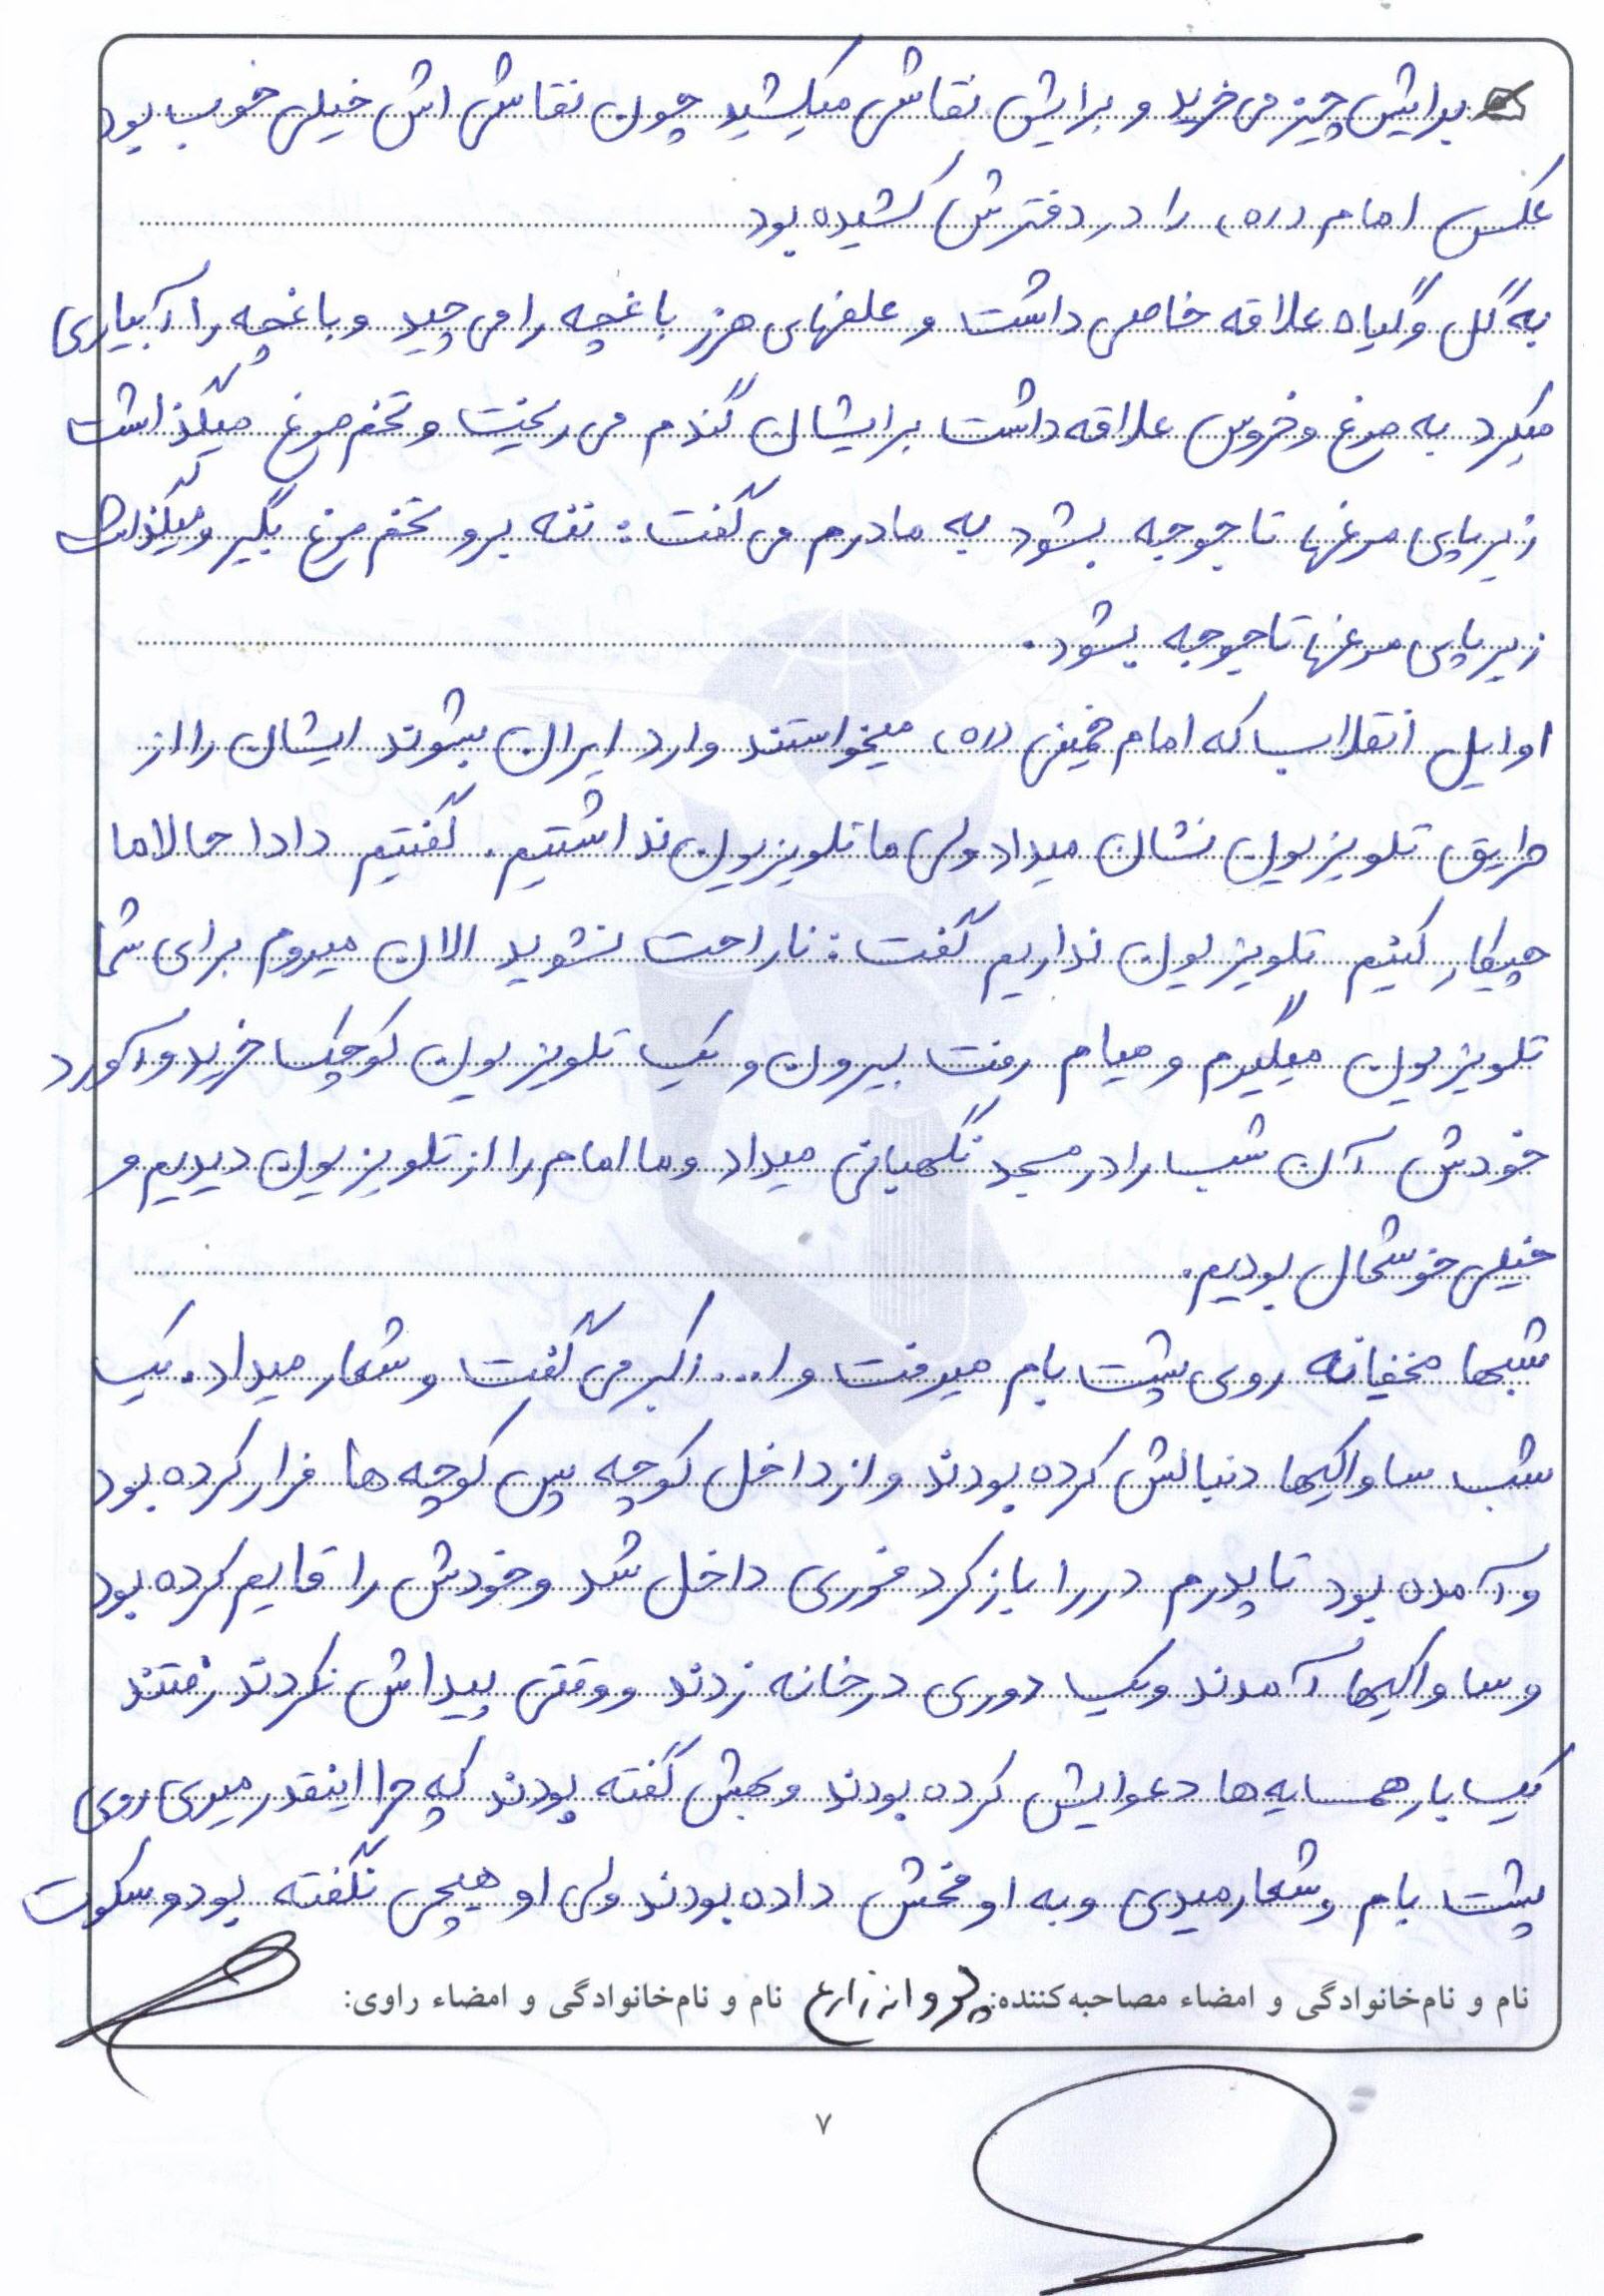 برایش چیز می خرید و برایش نقاشی میکشید چون نقاشی اش خیلی خوب بود
عکس امام (ره) را در دفترش کشیده بود
به گل و گیاه علاقه خاصی داشت و علفهای هرز باغچه را می چید و باغچه را آبیاری
میکرد به مرغ و خروس علاقه داشت برایشان گندم می ریخت و تخم مرغ میگذاشت
زیر پای مرغها تا جوجه بشود به مادرم می گفت: ننه برو تخم مرغ بگیر و میگذاشت
زیر پای مرغها تا جوجه بشود.
اوایل انقلاب که امام خمینی (ره) میخواستند وارد ایران بشوند ایشان را از
طریق تلویزیون نشان میداد ولی ما تلویزیون نداشتیم. گفتیم دادا حالا ما
چیکار کنیم تلویزیون نداریم گفت: ناراحت نشوید الان میروم برای شما
تلویزیون میگیرم و میام رفت بیرون و یک تلویزیون کوچک خرید و آورد
خودش آن شب را در مسجد نگهبانی میداد و ما امام را از تلویزیون دیدیم و
خیلی خوشحال بودیم.
شبها مخفیانه روی پشت بام میرفت و ا... اکبر می گفت و شعار میداد. یک
شب ساواکیها دنبالش کرده بودند و از داخل کوچه پس کوچه ها فرار کرده بود
و آمده بود تا پدرم در را باز کرد فوری داخل شد و خودش را قایم کرده بود
و ساواکیها آمدند و یک دوری در خانه زدند و وقتی پیداش نکردند رفتند
یک بار همسایه ها دعوایش کرده بودند و بهش گفته بودند که چرا اینقدر میری روی
پشت بام و شعار میدی و به او فحش داده بودند ولی او هیچی نگفته بود و سکوت
نام و نام‌خانوادگی و امضاء مصاحبه‌کننده: پروانه زارع نام و نام‌خانوادگی و امضاء راوی:
۷